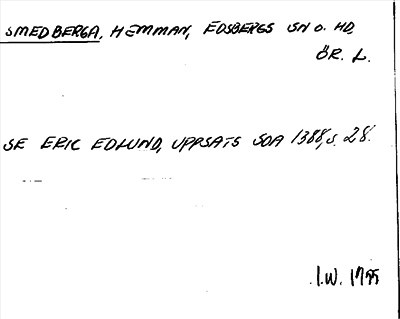 SMEDBERGA, HEMMAN, EDSBERGS SN O. HD,
ÖR. L.
SE ERIC EDLUND, UPPSATS SOA 1388, S. 28.
I.W. 1795